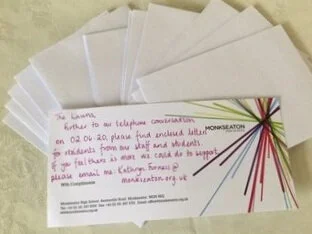 The Lawns,
Further to our telephone conversation
on 02.06.20, please find enclosed letters
for students from our staff and students.
If you feel there is more we could do to support,
please email me: Kathryn.
@
monkseaton.org.uk
MONKSEATON
With Compliments
Monkseaton High School, Seatonville Road